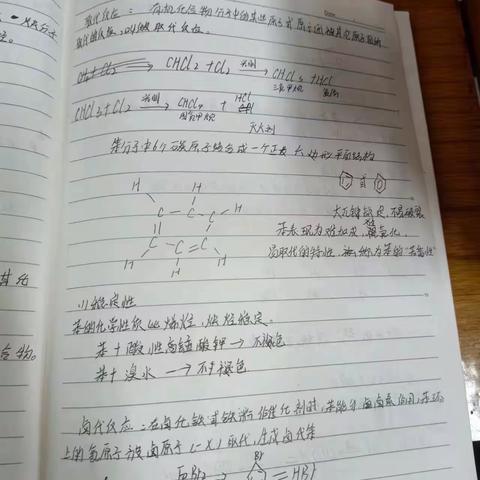 取代反应：有机化合物分子中的某些原子或原子团被其他原子或原子团
取代的反应，叫做取代反应。
CH₂Cl₂ + Cl₂ 光照→ CHCl₃ + HCl
三氯甲烷
CHCl₃ + Cl₂ 光照→ CCl₄ + HCl
四氯甲烷
灭火剂
苯分子中6个碳原子结合成一个正六边形平面结构
或
H
H
H
C — C — C
C — C = C
H
H
H
大π键稳定，不易破裂
苯表现为难加成，难氧化，
易取代的特性，被称为苯的"芳香性"
(1)稳定性
苯的化学性质比烯烃，炔烃稳定。
苯 + 酸性高锰酸钾 → 不褪色
苯 + 溴水 → 不褪色
卤代反应：在卤化铁或铁屑作催化剂时，苯能与卤素作用，苯环
上的氢原子被卤原子(-X)取代，生成卤代苯
FeBr₃
Br
HBr
合物。